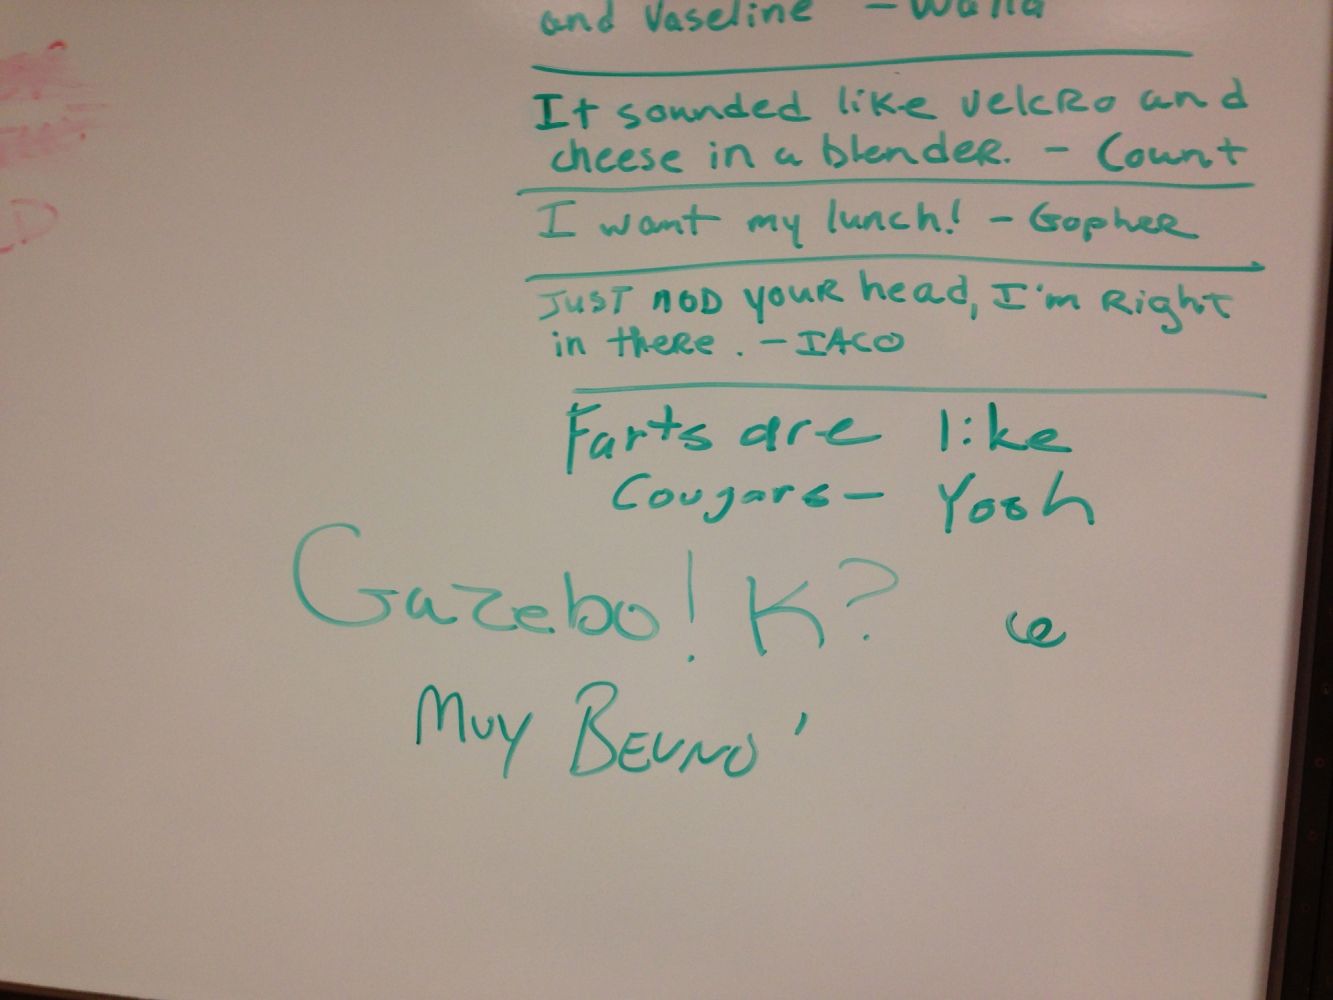 and Vaseline -
It sounded like velcro and
cheese in a blender. - Count
I want my lunch! - Gopher
Just nod your head, I'm right
in there. - IACO
Farts are like
Cougars - Yosh
Gazebo! K?
Muy Beuno'